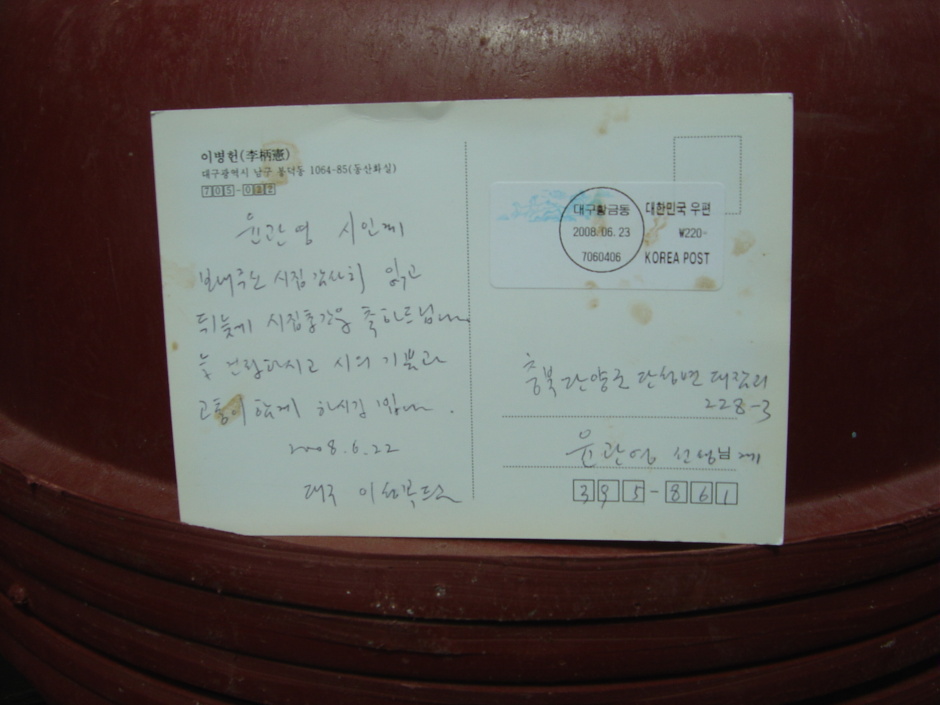 이병헌(李柄憲)
대구광역시 남구 봉덕동 1064-85(동산화실)
705-022
윤관영 시인께
보내주신 시집 감사히 읽고
뒤늦게 시집출간을 축하드립니다.
늘 건강하시고 시의 기쁨과
고통이 함께 하시길 빕니다.
2008.6.22
대구
대구황금동
2008.06.23
7060406
대한민국 우편
₩220-
KOREA POST
충북 단양군 단성면 대잠리
228-3
윤관영 선생님께
395-861